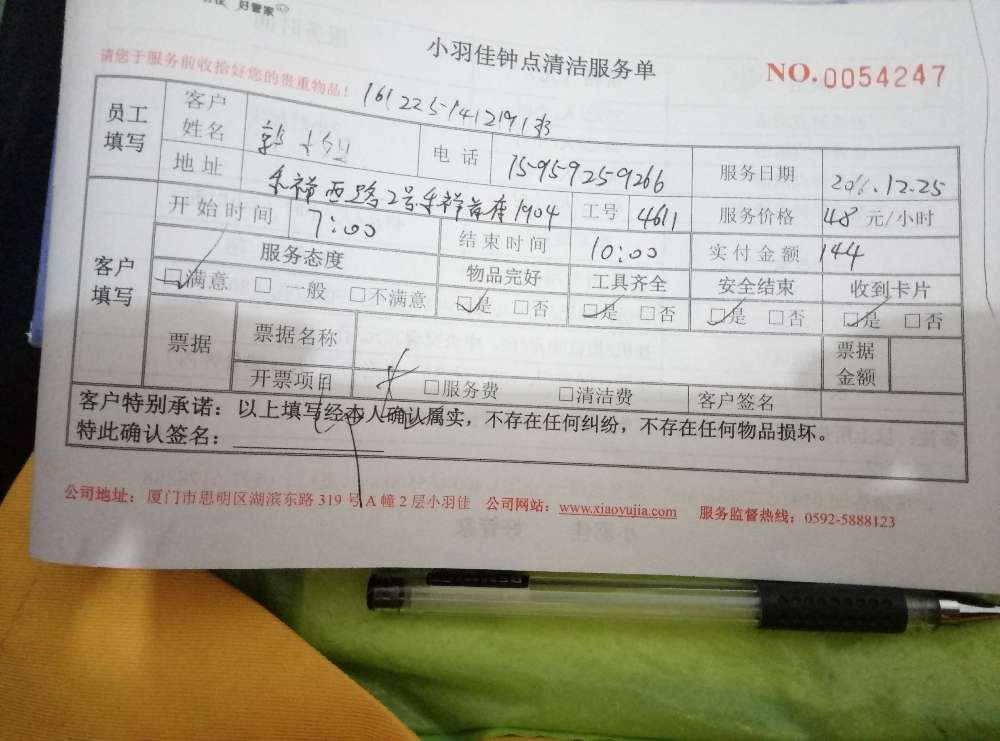 好管家
小羽佳钟点清洁服务单
请您于服务前收拾好您的贵重物品！
NO.0054247
员工填写 客户姓名 电话 15959259266 服务日期 2016.12.25
地址 禾祥西路2号禾祥首座1904 工号 4611 服务价格 48 元/小时
客户填写 开始时间 7:00 结束时间 10:00 实付金额 144
服务态度 物品完好 工具齐全 安全结束 收到卡片
满意 一般 不满意 是 否 是 否 是 否 是 否
票据 票据名称 票据金额
开票项目 服务费 清洁费 客户签名
客户特别承诺：以上填写经本人确认属实，不存在任何纠纷，不存在任何物品损坏。
特此确认签名：
公司地址：厦门市思明区湖滨东路 319 号 A 幢 2 层小羽佳 公司网站：www.xiaoyujia.com 服务监督热线：0592-5888123